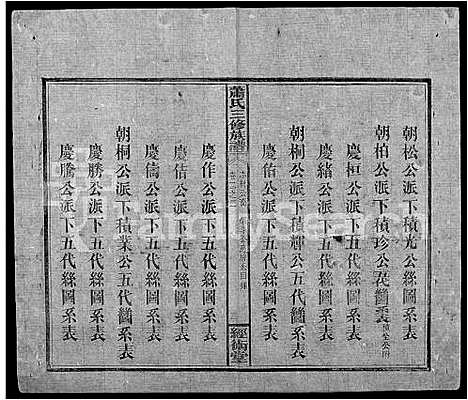 朝松公派下積光公絲圖系表
朝柏公派下積珍公花薗系表
慶桓公派下五代絲圖系表
慶緒公派下五代絲圖系表
朝桐公派下積輝公五代薗系表
慶偕公派下五代絲圖系表
蕭氏三修族譜
經術堂
慶作公派下五代絲圖系表
慶佶公派下五代絲圖系表
慶儔公派下五代絲圖系表
朝桐公派下積業公五代薗系表
慶勝公派下五代絲圖系表
慶騰公派下五代絲圖系表
FamilySearch